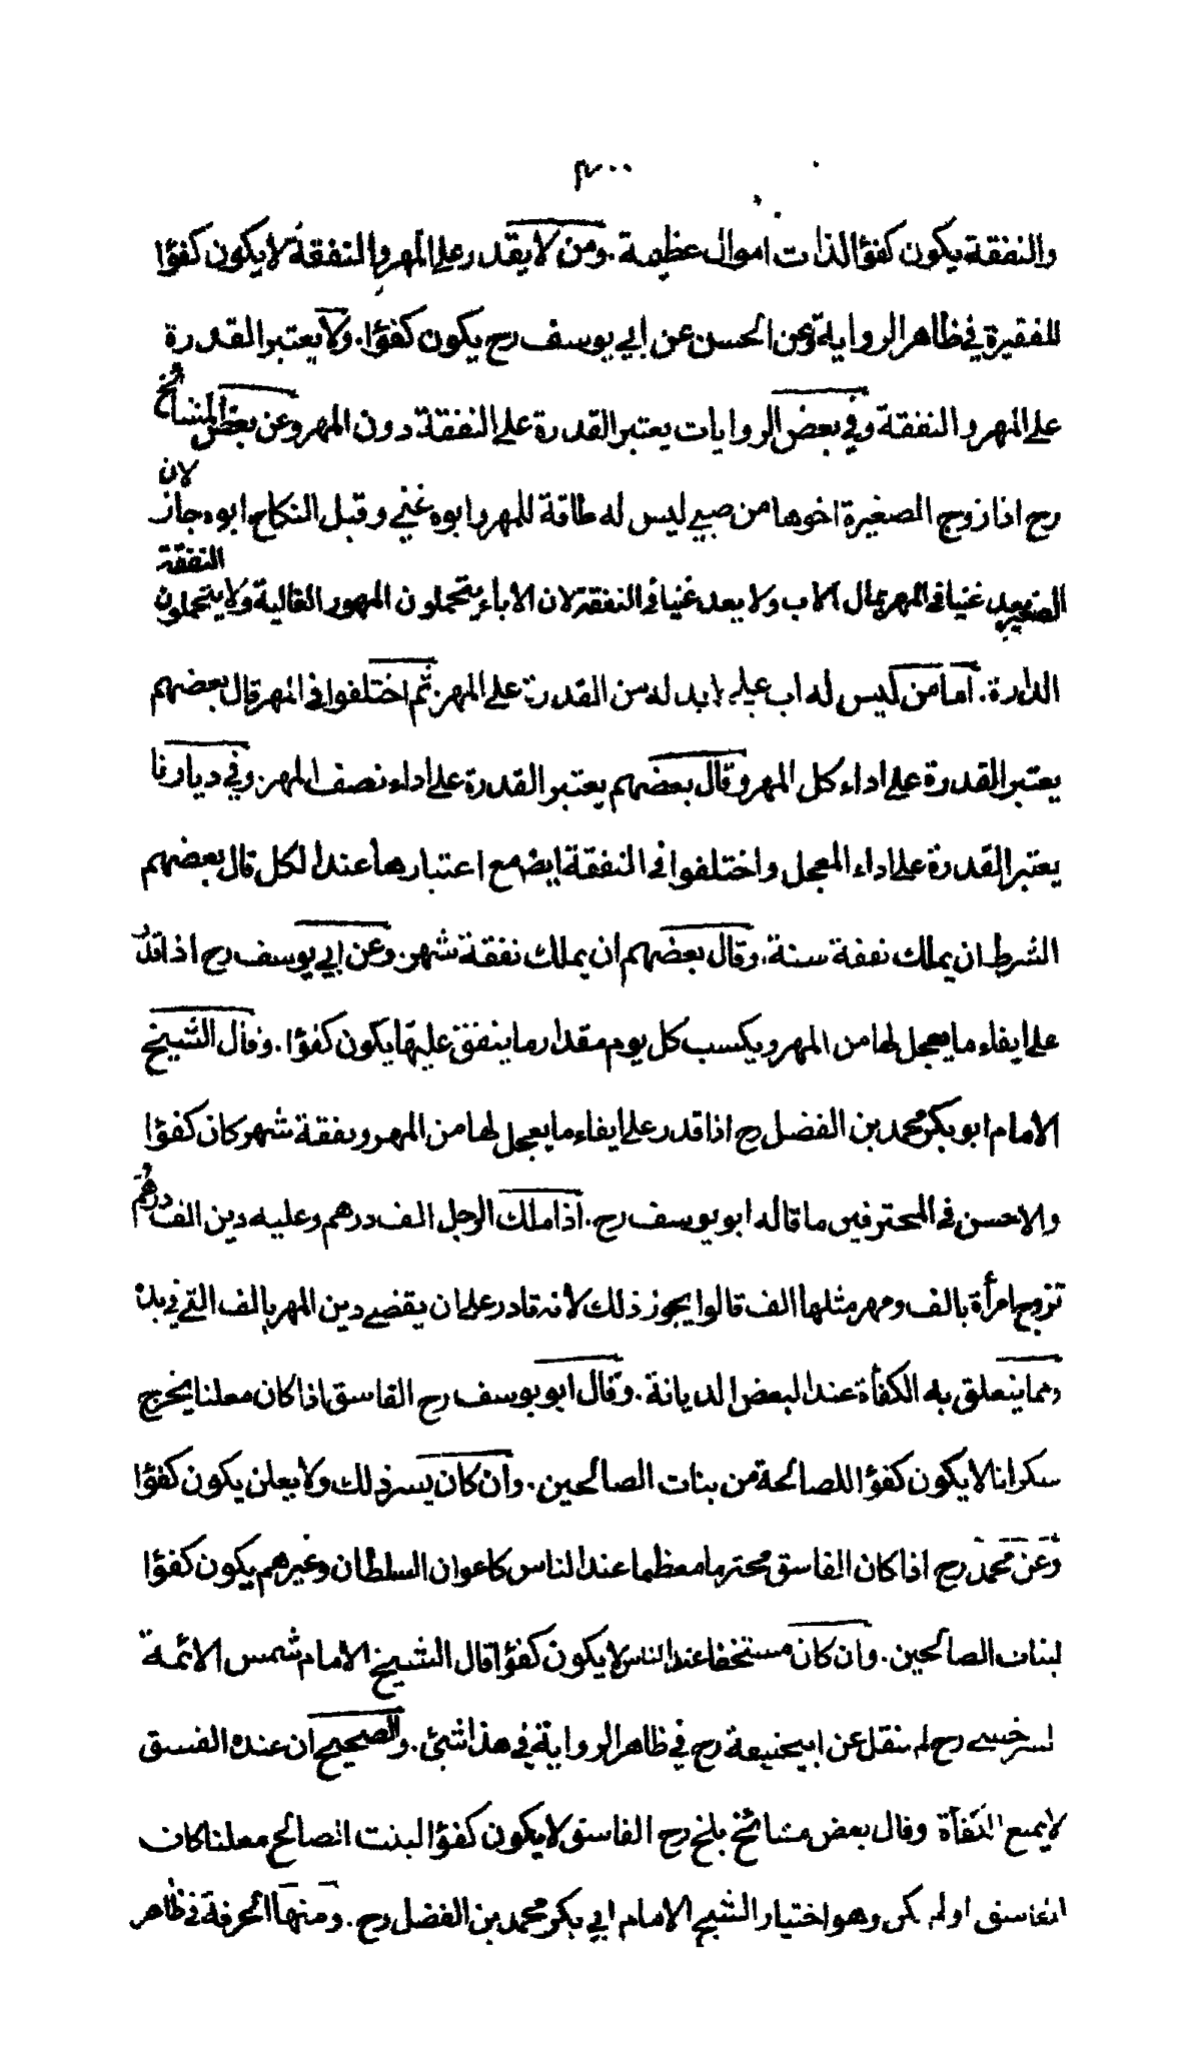 ٤٠٠
والنفقة يكون كفؤا لذات اموال عظيمة . ومن لا يقدر على المهر والنفقة لا يكون كفؤا
للفقيرة في ظاهر الرواية وعن الحسن عن ابي يوسف رح يكون كفؤا . ولا يعتبر القدرة
على المهر والنفقة وفي بعض الروايات يعتبر القدرة على النفقة دون المهر وعن بعض المشائخ
رح اذا زوج الصغيرة اخوها من صبي ليس له طاقة للمهر وابوه غني وقبل النكاح ابوه جاز لان
الصغير يعد غنيا في المهر بمال الاب ولا يعد غنيا في النفقة لان الاباء يتحملون المهور الغالية ولا يتحملون النفقة
الدارة . اما من ليس له اب عليه لابد له من القدرة على المهر . ثم اختلفوا في المهر قال بعضهم
يعتبر القدرة على اداء كل المهر وقال بعضهم يعتبر القدرة على اداء نصف المهر . وفي ديارنا
يعتبر القدرة على اداء المعجل واختلفوا في النفقة ايضا مع اعتبارها عند الكل قال بعضهم
الشرط ان يملك نفقة سنة . وقال بعضهم ان يملك نفقة شهر . وعن ابي يوسف رح اذا قدر
على ايفاء ما يعجل لها من المهر ويكسب كل يوم مقدار ما ينفق عليها يكون كفؤا . وقال الشيخ
الامام ابو بكر محمد بن الفضل رح اذا قدر على ايفاء ما يعجل لها من المهر ونفقة شهر كان كفؤا
والاحسن في المحترفين ما قاله ابو يوسف رح . اذا ملك الرجل الف درهم وعليه دين الف درهم
تزوج امرأة بالف ومهر مثلها الف قالوا يجوز ذلك لانه قادر على ان يقضي دين المهر بالف التي في يده
ومما يتعلق به الكفأة عند البعض الديانة . وقال ابو يوسف رح الفاسق اذا كان معلنا يخرج
سكرانا لا يكون كفؤا للصالحة من بنات الصالحين . وان كان يسر ذلك ولا يعلن يكون كفؤا
وعن محمد رح اذا كان الفاسق محترما معظما عند الناس كاعوان السلطان وغيرهم يكون كفؤا
لبنات الصالحين . وان كان مستخفا عند الناس لا يكون كفؤا قال الشيخ الامام شمس الائمة
السرخسي رح لم ينقل عن ابيحنيفة رح في ظاهر الرواية في هذا شئ . والصحيح ان عنده الفسق
لا يمنع الكفأة وقال بعض مشائخ بلخ رح الفاسق لا يكون كفؤا لبنت الصالح معلنا كان
الفاسق او لم يكن وهو اختيار الشيخ الامام ابي بكر محمد بن الفضل رح . ومنها الحرفة في ظاهر